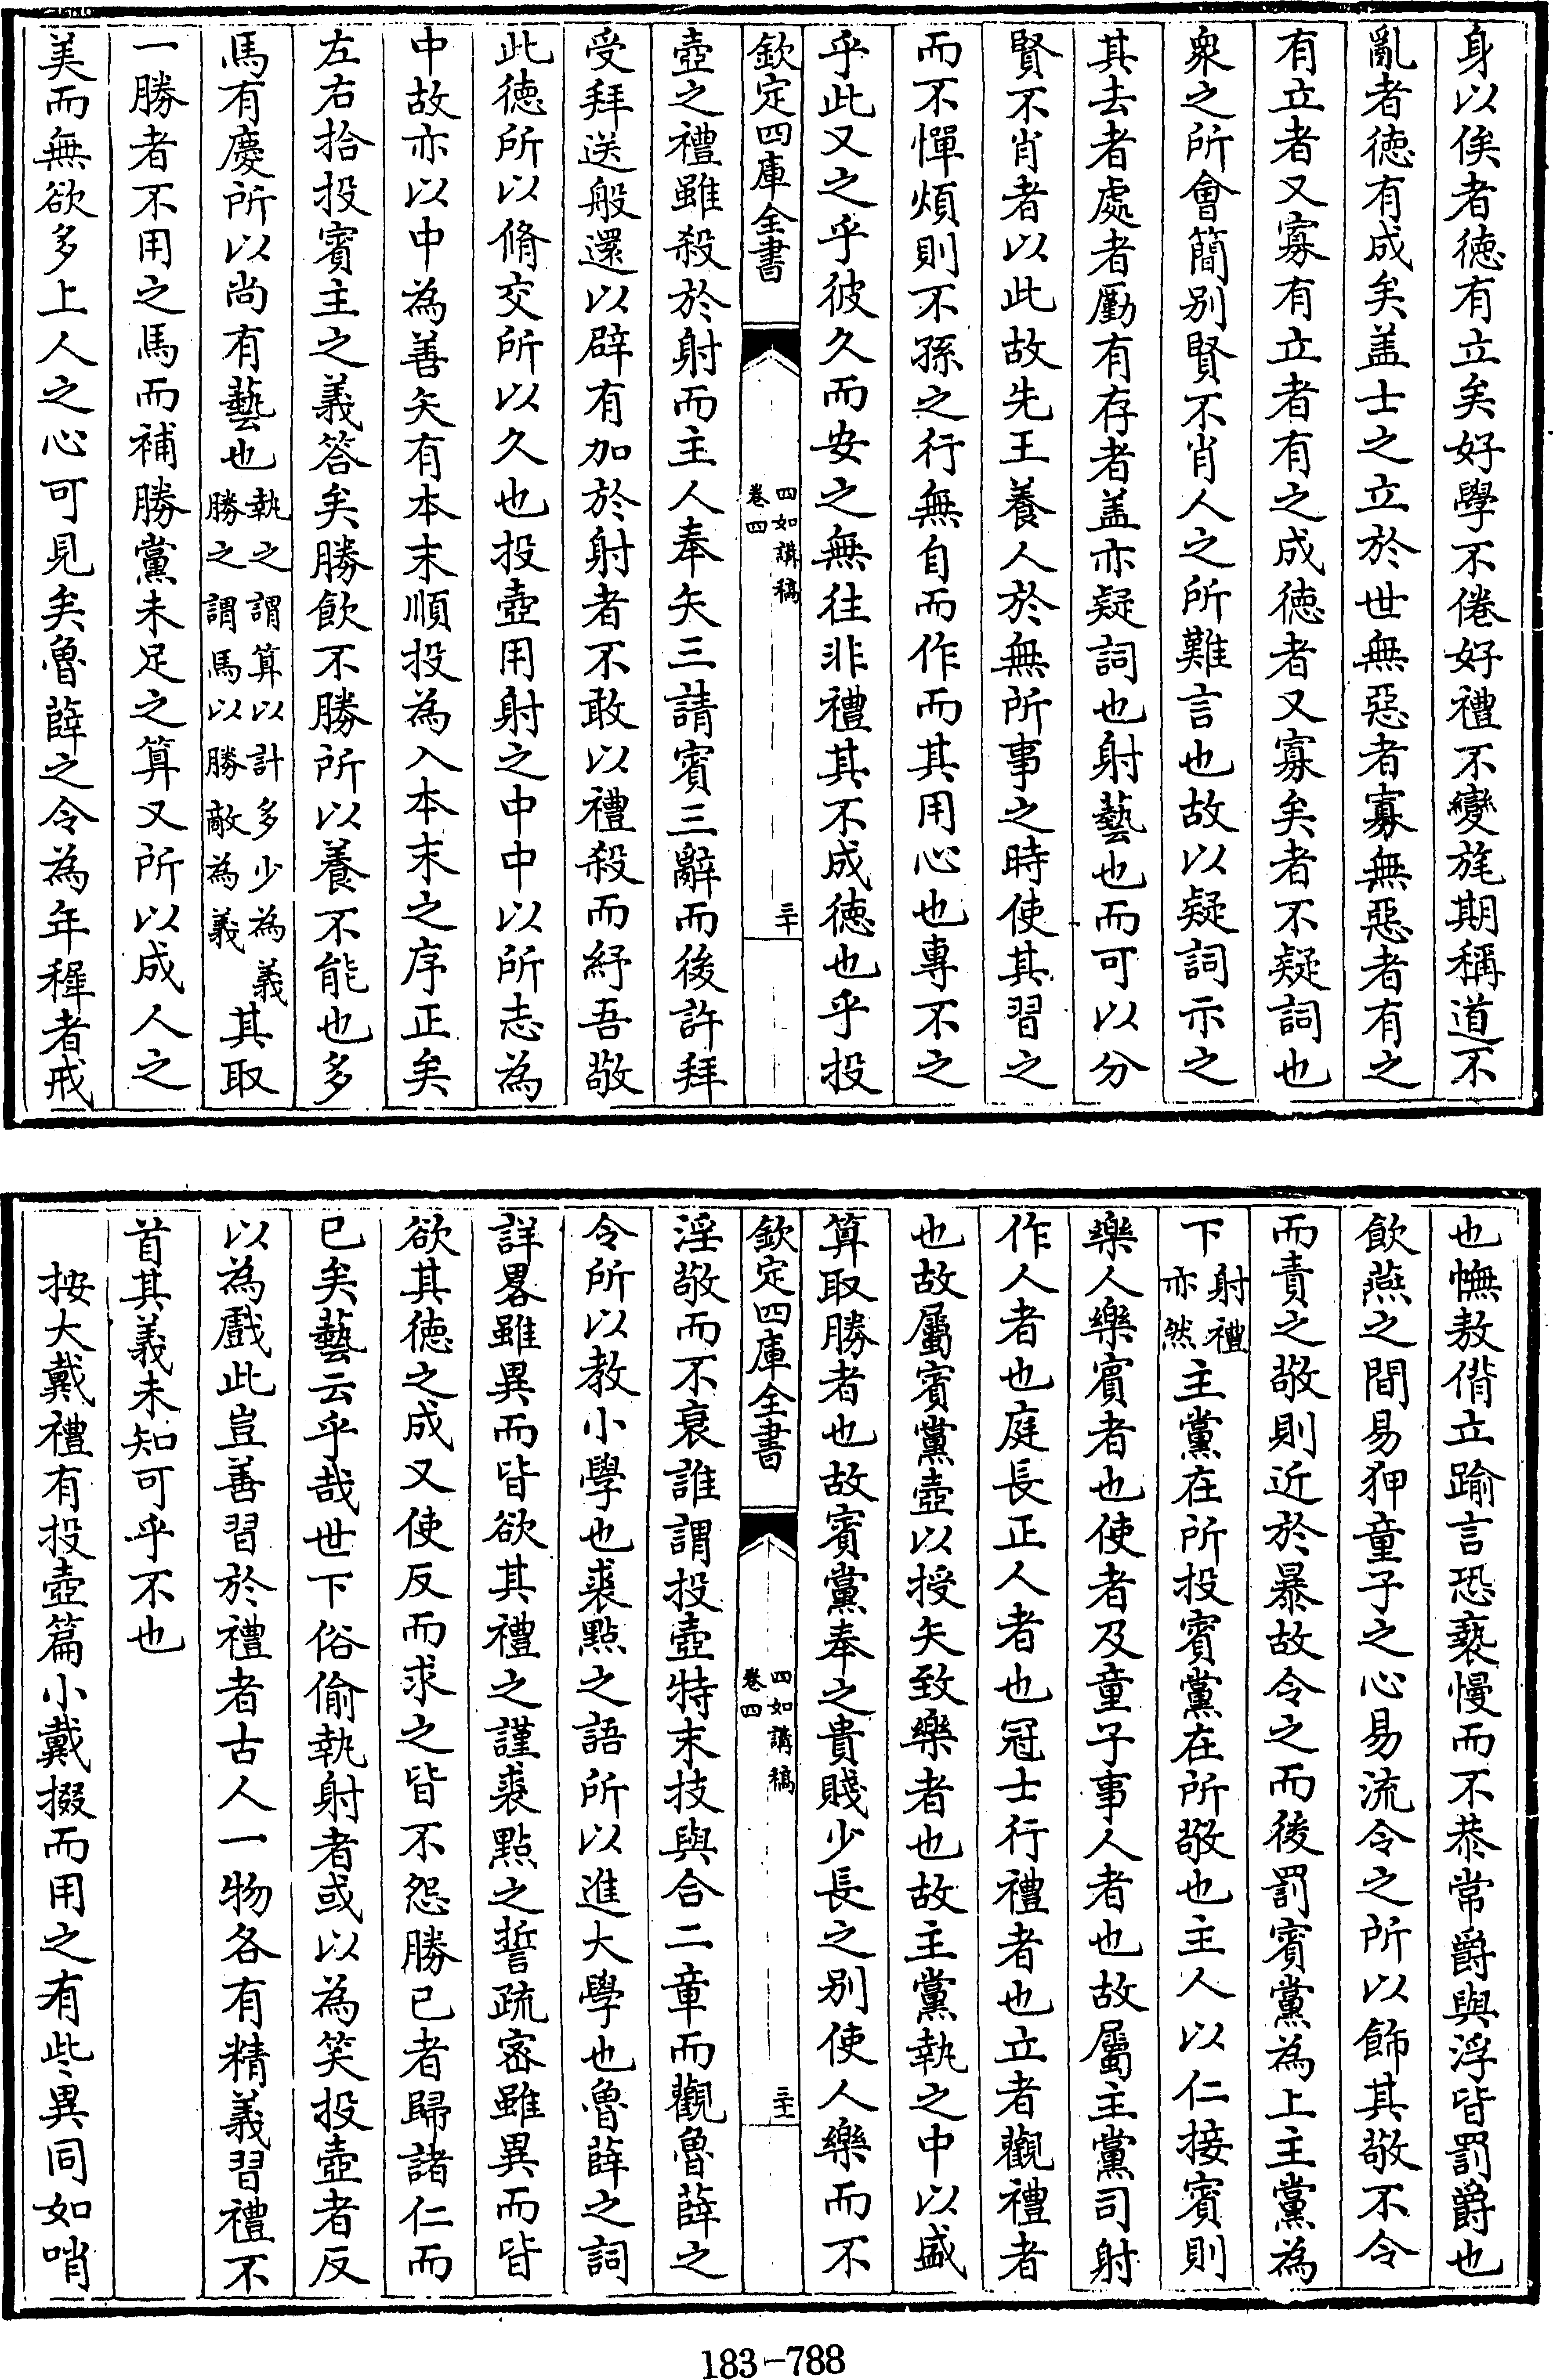 身以俟者徳有立矣好學不倦好禮不變旄期稱道不
亂者徳有成矣盖士之立於世無惡者寡無惡者有之
有立者又寡有立者有之成徳者又寡矣者不疑詞也
衆之所會簡别賢不肖人之所難言也故以疑詞示之
其去者處者勵有存者盖亦疑詞也射藝也而可以分
賢不肖者以此故先王養人於無所事之時使其習之
而不憚煩則不孫之行無自而作而其用心也專不之
乎此又之乎彼久而安之無往非禮其不成徳也乎投
欽定四庫全書
四如講稿
卷四
三十
壺之禮雖殺於射而主人奉矢三請賓三辭而後許拜
受拜送般還以辟有加於射者不敢以禮殺而紓吾敬
此徳所以脩交所以久也投壺用射之中中以所志為
中故亦以中為善矢有本末順投為入本末之序正矣
左右拾投賓主之義答矣勝飲不勝所以養不能也多
馬有慶所以尚有藝也執之謂算以計多少為義勝之謂馬以勝敵為義其取
一勝者不用之馬而補勝黨未足之算又所以成人之
美而無欲多上人之心可見矣魯薛之令為年穉者戒
也憮敖偝立踰言恐䙝慢而不恭常爵與浮皆罰爵也
飲燕之間易狎童子之心易流令之所以飾其敬不令
而責之敬則近於暴故令之而後罰賓黨為上主黨為
下射禮亦然主黨在所投賓黨在所敬也主人以仁接賓則
樂人樂賓者也使者及童子事人者也故屬主黨司射
作人者也庭長正人者也冠士行禮者也立者觀禮者
也故屬賓黨壺以授矢致樂者也故主黨執之中以盛
算取勝者也故賓黨奉之貴賤少長之别使人樂而不
欽定四庫全書
四如講稿
卷四
三十一
淫敬而不衰誰謂投壺特末技與合二章而觀魯薛之
令所以教小學也裘點之語所以進大學也魯薛之詞
詳畧雖異而皆欲其禮之謹裘點之誓疏宻雖異而皆
欲其徳之成又使反而求之皆不怨勝已者歸諸仁而
已矣藝云乎哉世下俗偷執射者或以為笑投壺者反
以為戲此豈善習於禮者古人一物各有精義習禮不
首其義未知可乎不也
按大戴禮有投壺篇小戴掇而用之有些異同如哨
183-788